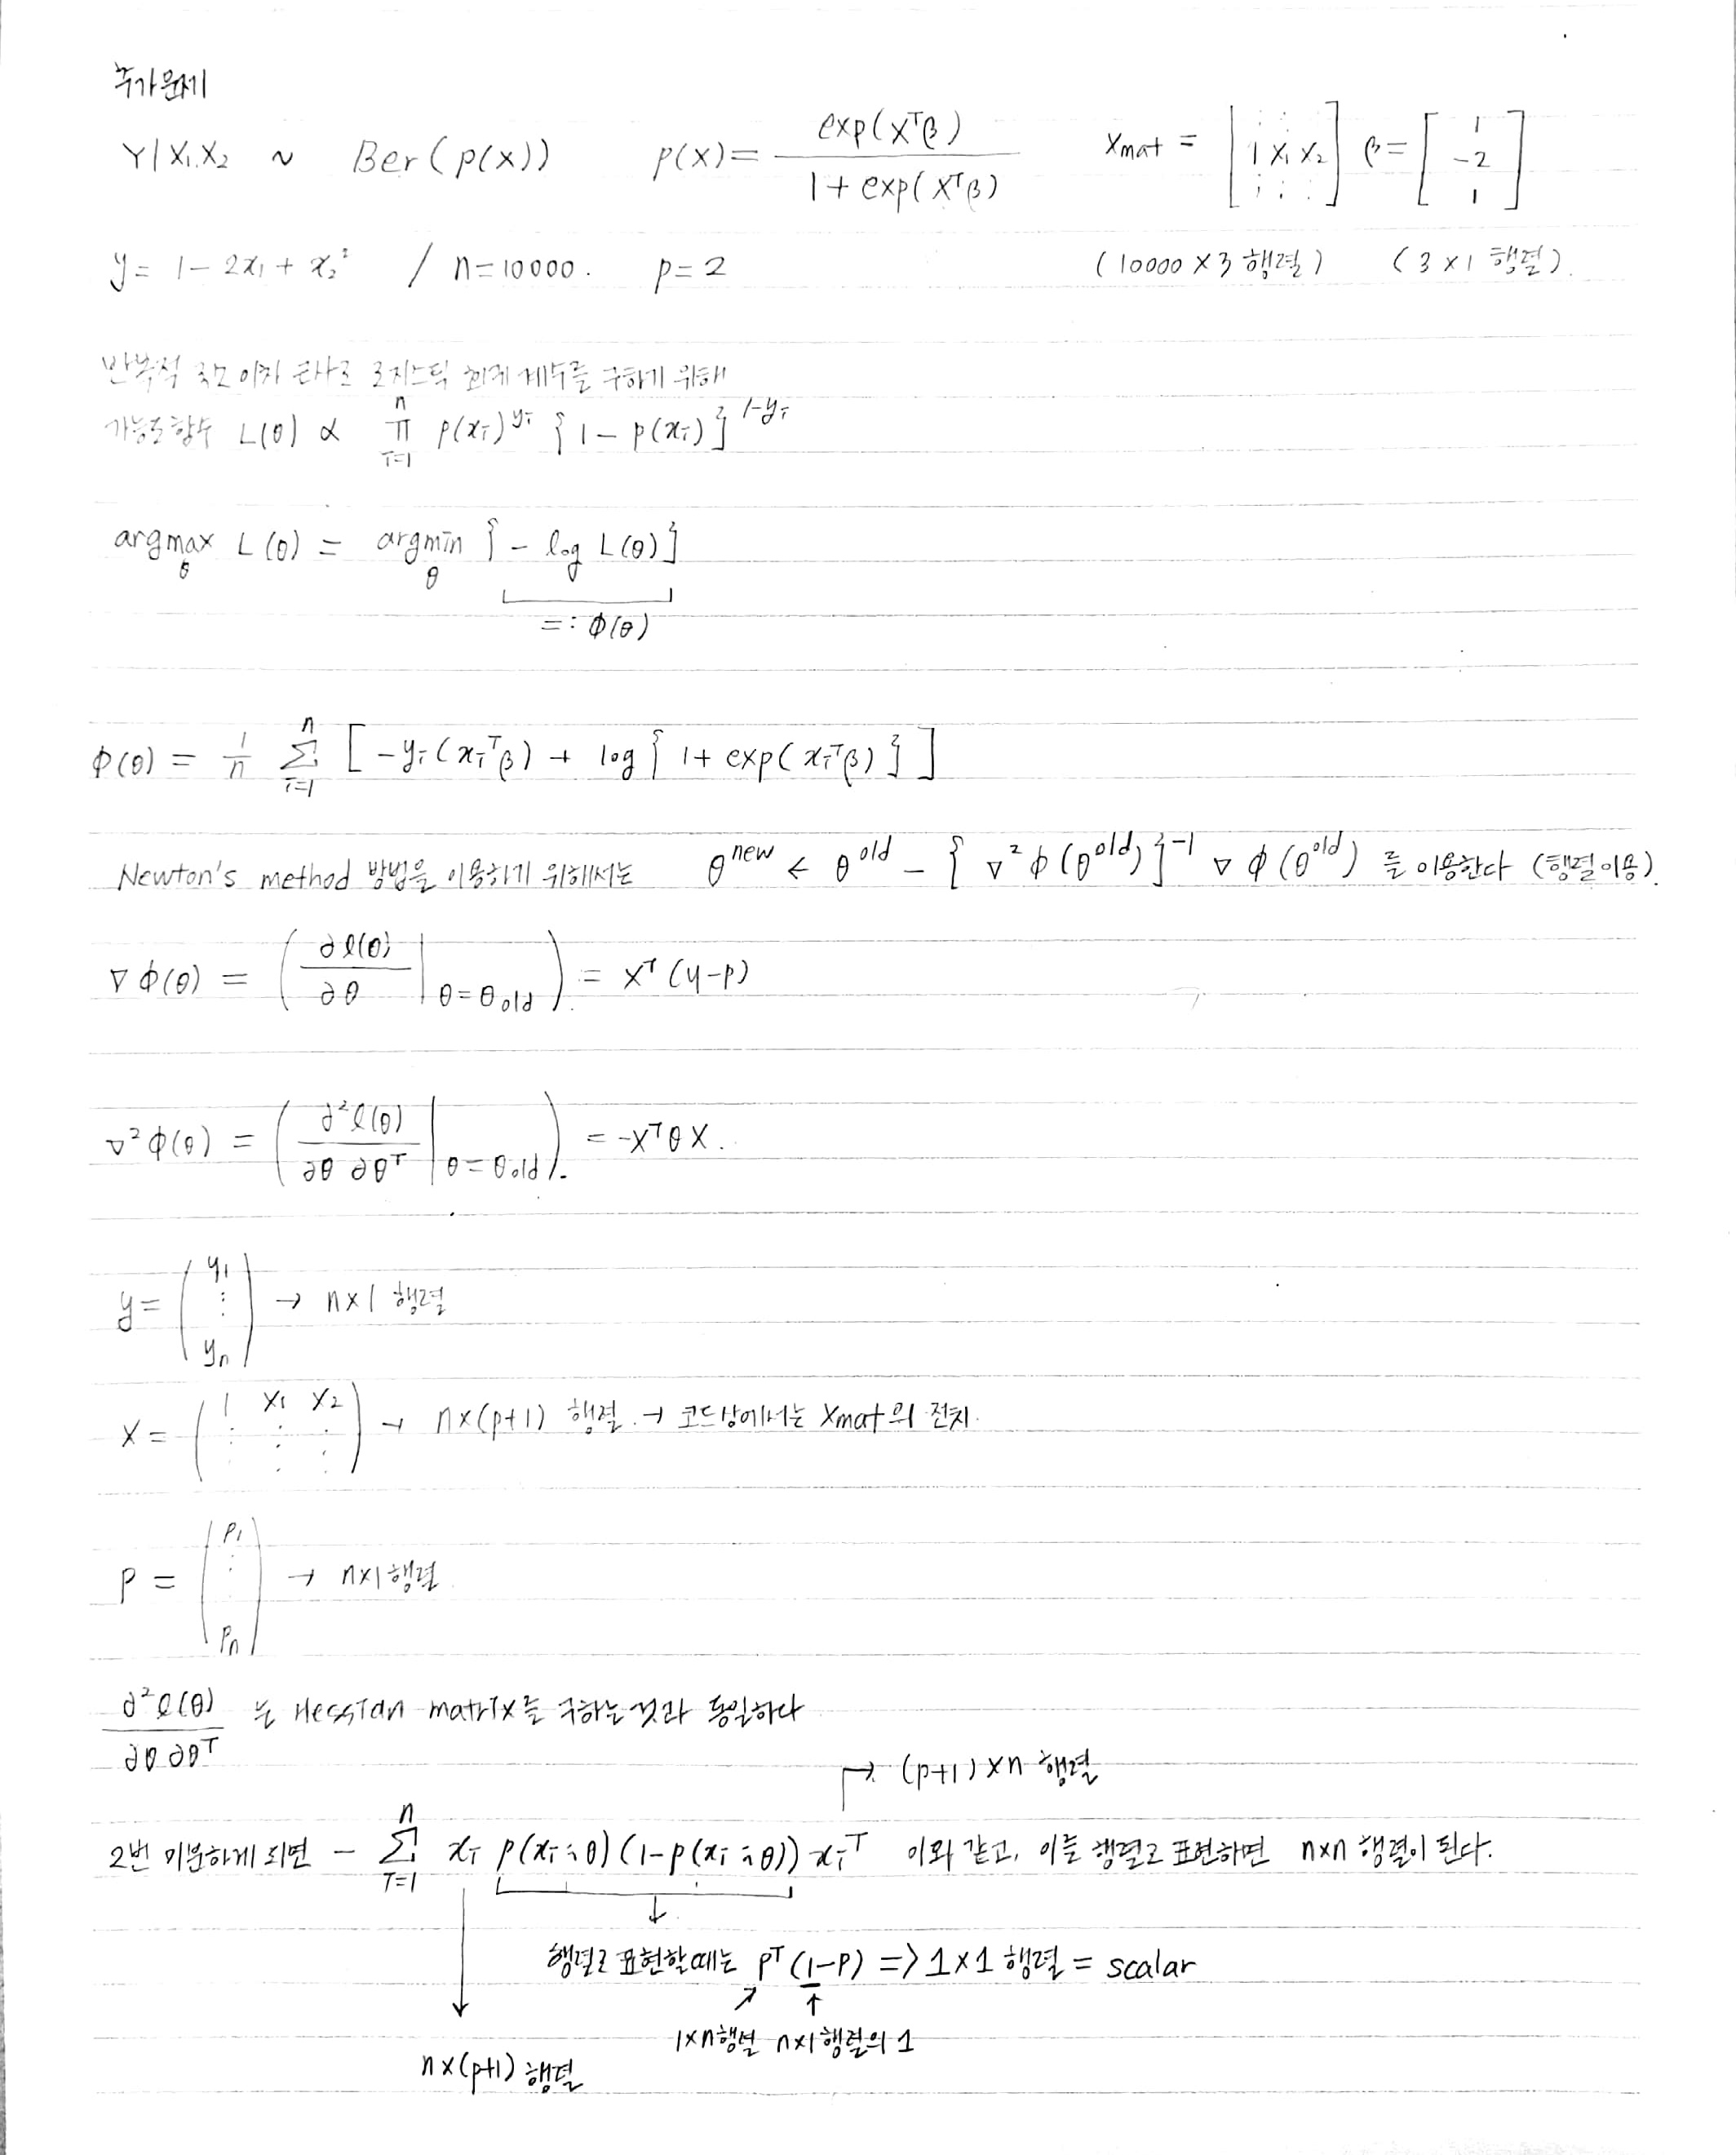 추가문제
Y|X₁.X₂ ~ Ber(p(x)) p(x)= exp(xᵀβ) / 1+exp(xᵀβ) Xmat = [1 x₁ x₂] β=[1 -2 1]
y= 1-2x₁+x₂² / n=10000. p=2 (10000×3 행렬) (3×1 행렬).
로지스틱 회귀 계수를 구하기 위해
가능도함수 L(θ) ∝ ∏ᵢ₌₁ⁿ p(xᵢ)^yᵢ {1-p(xᵢ)}^1-yᵢ
argmax_θ L(θ) = argmin_θ {-log L(θ)}
=: ϕ(θ)
ϕ(θ) = 1/n Σᵢ₌₁ⁿ [-yᵢ(xᵢᵀβ) + log{1+exp(xᵢᵀβ)}]
Newton's method 방법을 이용하기 위해서는 θ^new ← θ^old - {∇²ϕ(θ^old)}⁻¹ ∇ϕ(θ^old) 를 이용한다 (행렬이용).
∇ϕ(θ) = (∂ℓ(θ)/∂θ |θ=θold). = xᵀ(y-p)
∇²ϕ(θ) = (∂²ℓ(θ)/∂θ ∂θᵀ |θ=θold). = -xᵀθX.
y= (y₁ ⋮ yₙ) → n×1 행렬
X = (1 X₁ X₂ ⋮ ⋮ ⋮) → n×(p+1) 행렬 → 코드상에서는 Xmat의 전치.
P = (p₁ ⋮ pₙ) → n×1행렬.
∂²ℓ(θ)/∂θ ∂θᵀ 는 Hessian matrix를 구하는것과 동일하다
→ (p+1)×n 행렬
2번 미분하게 되면 - Σᵢ₌₁ⁿ xᵢ p(xᵢ;θ)(1-p(xᵢ;θ)) xᵢᵀ 이와 같고, 이를 행렬로 표현하면 n×n 행렬이 된다.
행렬로 표현할때는 pᵀ(1-p) => 1×1 행렬 = scalar
1×n행렬 n×1행렬의 1
n×(p+1) 행렬